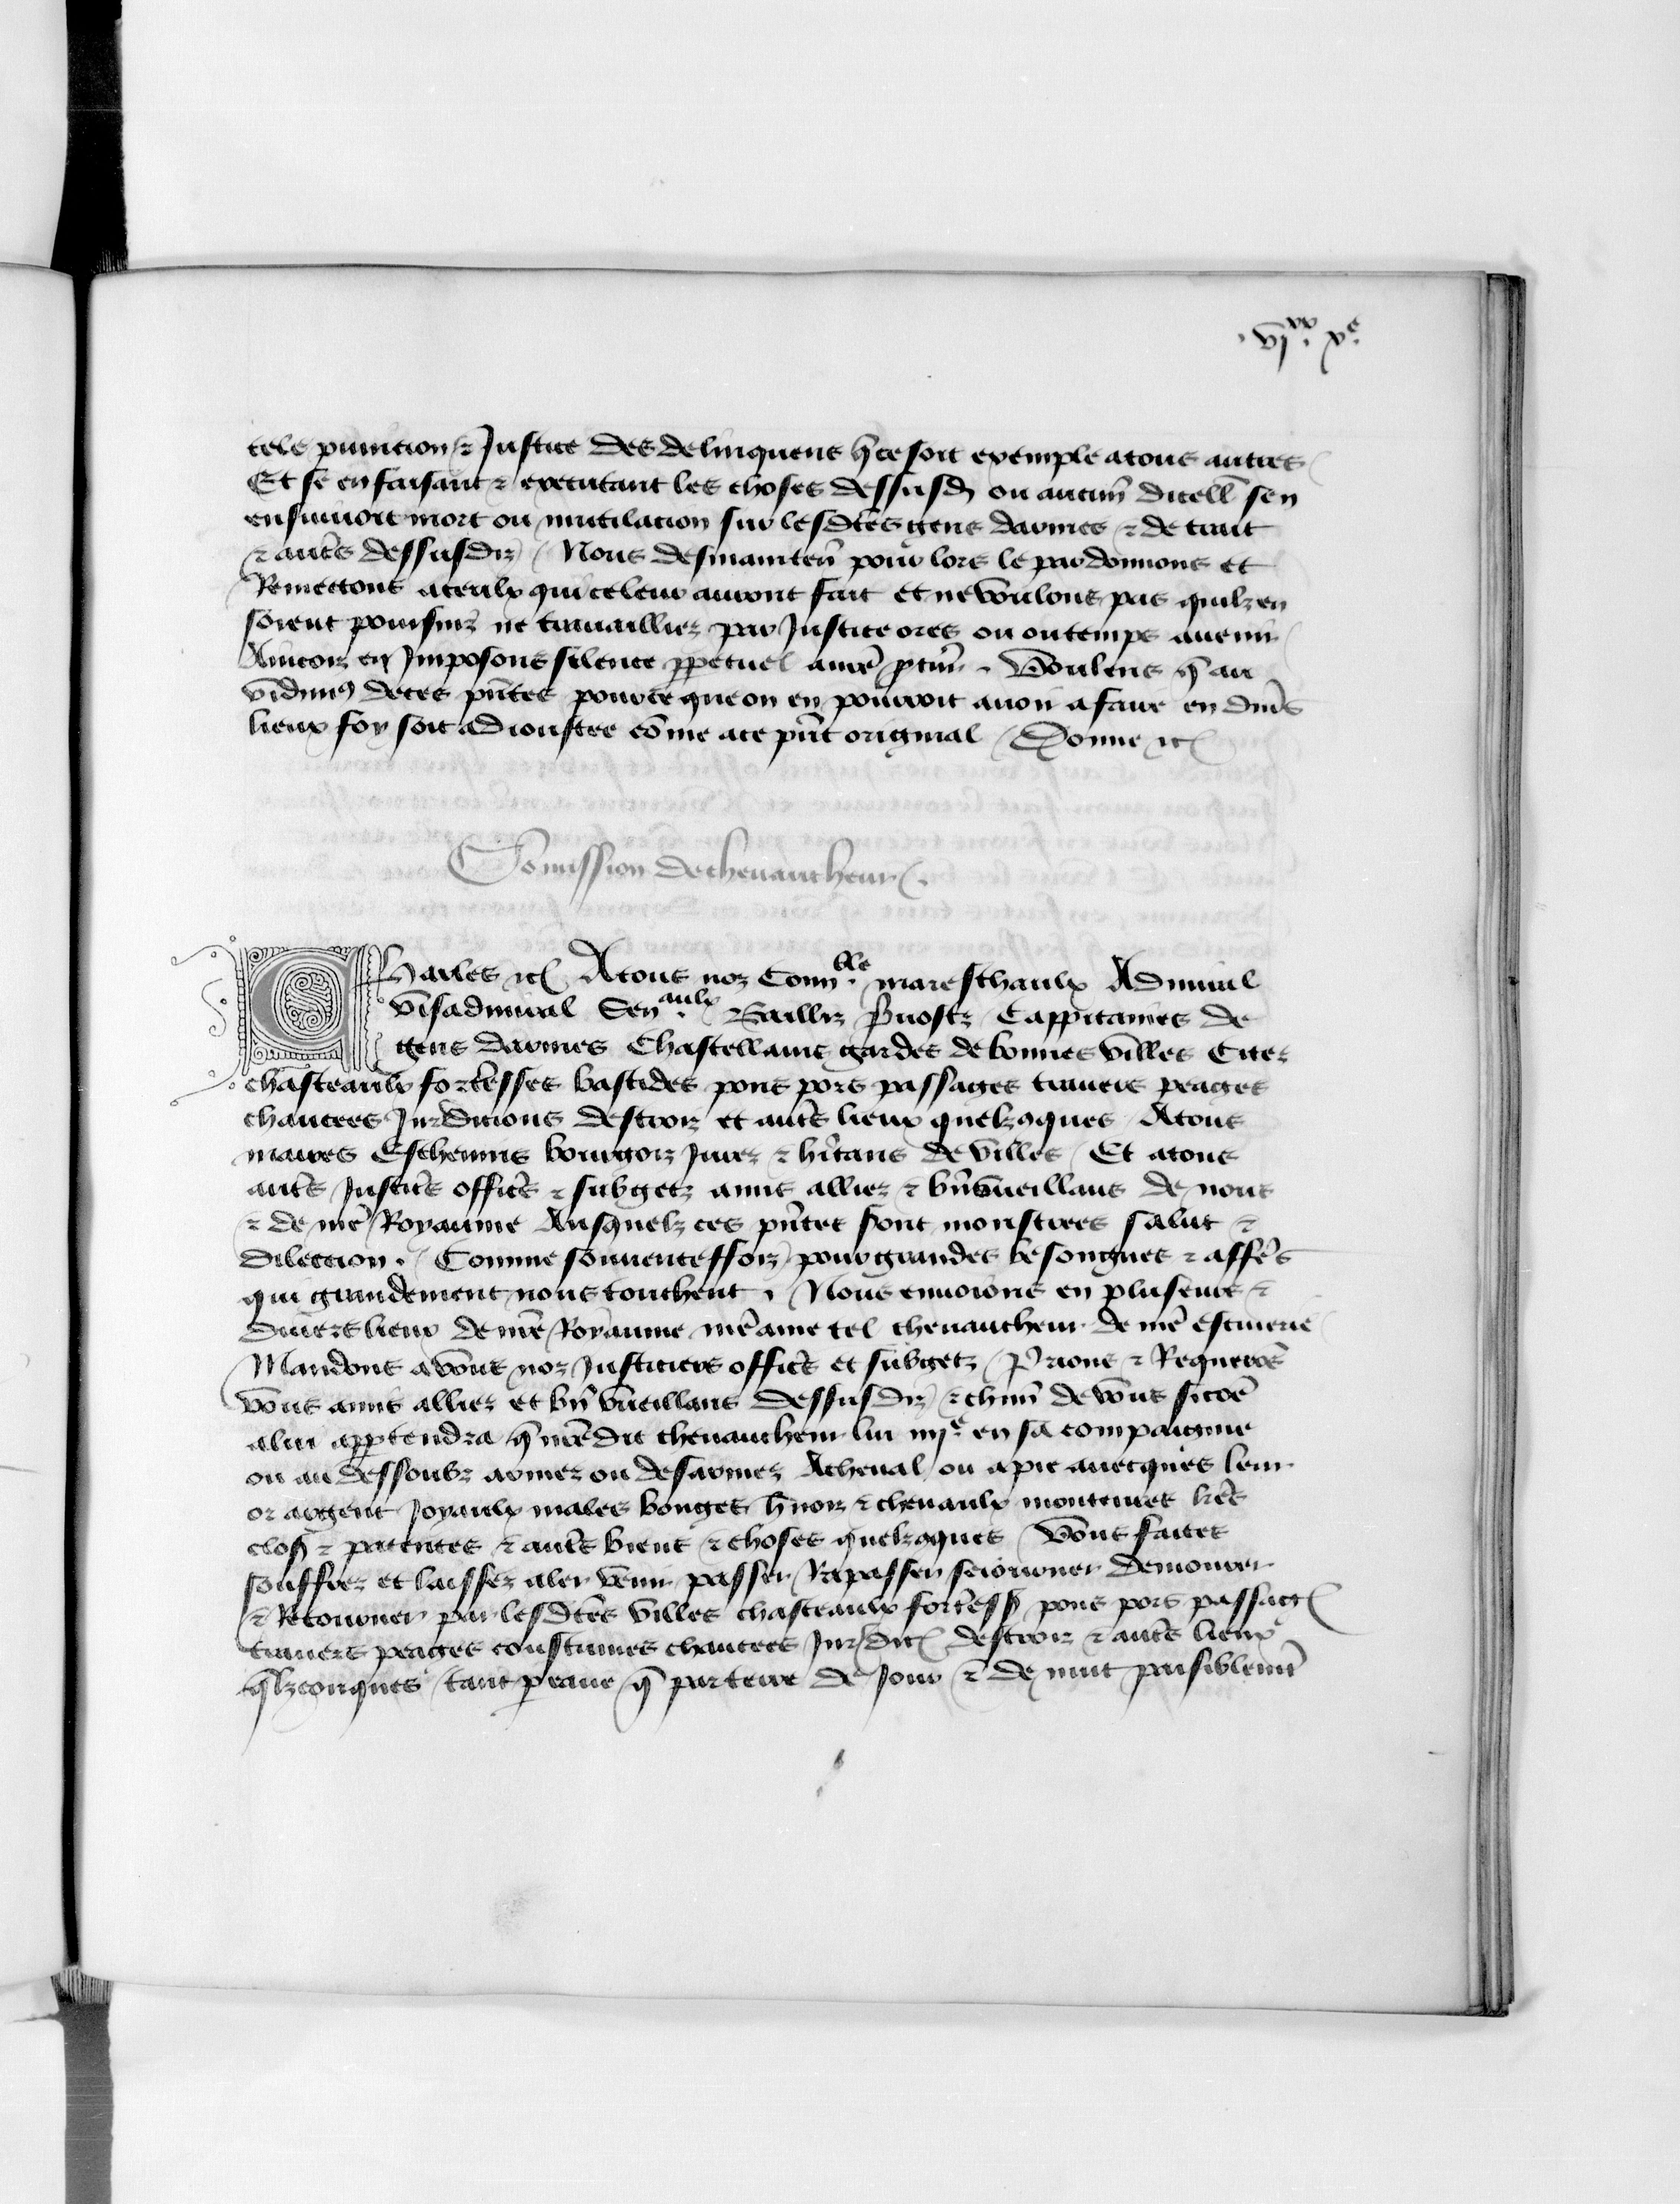 . vjxx. xe.
tele punicion & Justice des delinquens q̄ ce soit exemple a tous autres
Et se en faisant & executant les choses dessusd ou aucun̄ dicell sen
ensuiuoit mort ou mutilacion sur lesdtēs gens darmes & de trait
& autēs dessusdiz / Nous desmainten̄ pour lors le pardonnons et
Remettons a ceulx qui ce leur auront fait Et ne voulons pas quilz en
soient poursuiz ne trauailliez par Justice ores ou ou temps auenir
Aincois en Imposons silence ppetuel a nr̄e p̄cur̄ . Voulens q̄ au
vidimus de ces pn̄tes pource que on en pourroit auoir a faire en diūs
lieux foy soit adioustee cōme a ce pn̄t original / Donne &c
Cōmission de cheuaucheur .
Charles &c A tous noz Connble. mareschaulx Admiral
visadmiral Senaulx. Bailliz Pr̄uostz Cappitaines de
gens darmes Chastellains gardes de bonnes villes Citez
chasteaulx fortesses bastides pons pors passages trauers peages
chaucees Jurdicions destroiz et autēs lieux quelzoques A tous
maires Escheuins bourgois Juiez & hītans de villes / Et a tous
autēs Justicēs officēs & subgetz amis alliez & bn̄vueillans de nous
& de nrē Royaume Ausquelz ces pn̄tes sont monstrees salut &
dilection . Comme souuenteffoiz pour grandes besongnes & affēs
qui grandement nous touchent , Nous enuoions en plusieurs &
diuers lieux de nrē Royaume nrē ame tel cheuaucheur de nrē escuierie
Mandons a vous noz Justiciers officēs et subgetz / Prions & Requerōs
vous amis alliez et bn̄ vueillans dessusdiz & chun̄ de vous sicōe
a lui appartendra q̄ nrē dit cheuaucheur lui iije en sa compaignie
ou au dessoubz armez ou desarmez A cheual ou a pie auecques leur
or argent Joyaulx males bouges h̄nois & cheuaulx monteures lrēs
clos & patentes & autēs biens & choses quelzoques / Vous faites
souffrez et laissez aler venir passer Rapasser seiourner demourer
& Retourner par lesdtēs villes chasteaulx fortēss pons pors passag
trauers peages coustumes chaucees Jurdic destroiz & autēs lieux
q̄lzconques tant p eaue q̄ par terre de Jour & de nuit paisiblemt̄